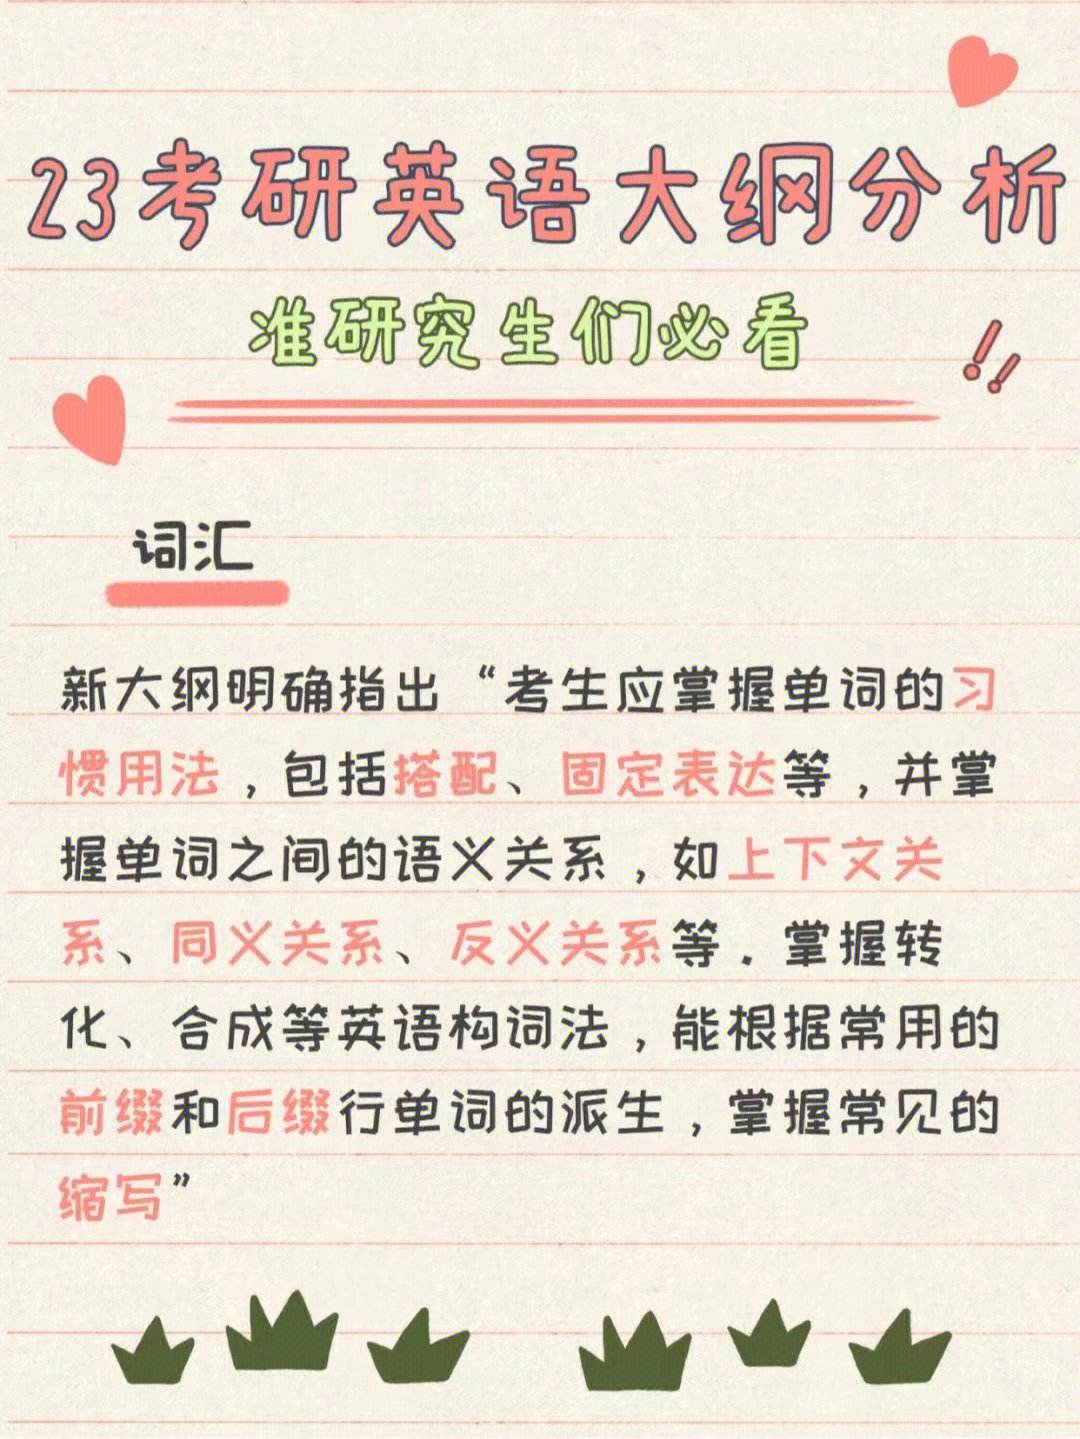 23考研英语大纲分析
准研究生们必看
!!
词汇
新大纲明确指出“考生应掌握单词的习
惯用法，包括搭配、固定表达等，并掌
握单词之间的语义关系，如上下文关
系、同义关系、反义关系等．掌握转
化、合成等英语构词法，能根据常用的
前缀和后缀行单词的派生，掌握常见的
缩写”